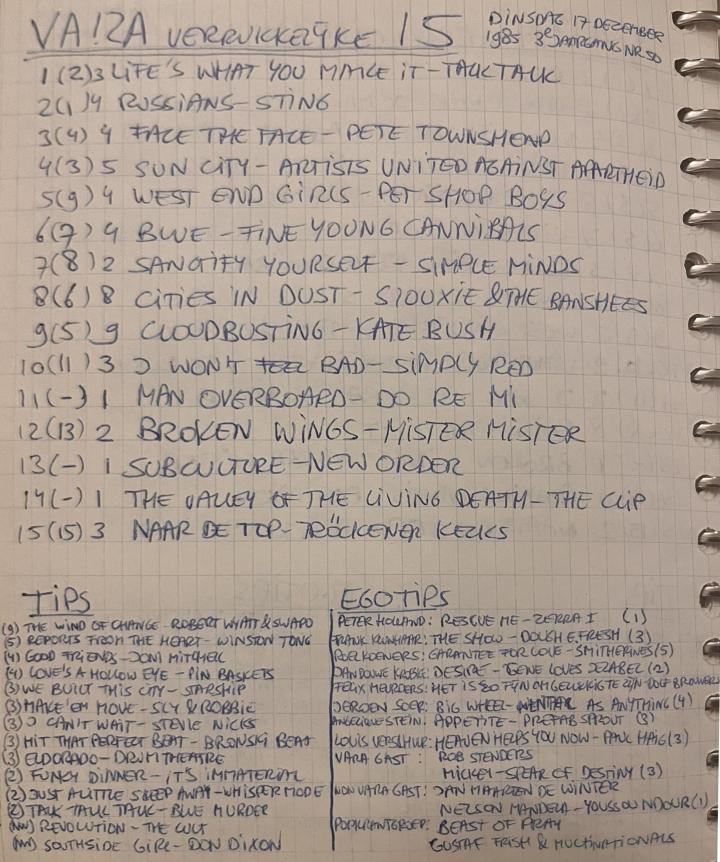 VA!ZA VERRUKKELIJKE 15
DINSDAG 17 DEZEMBER
1985 3e JAARGANG NR 50
1(2)3 LIFE'S WHAT YOU MAKE iT-TALK TALK
2(1)4 RUSSIANS-STING
3(4) 4 FACE THE FACE- PETE TOWNSHEND
4(3)5 SUN CITY-ARTISTS UNITED AGAINST APARTHEID
5(9)4 WEST END GIRLS-PET SHOP BOYS
6(7)4 BLUE-FINE YOUNG CANNIBALS
7(8)2 SANCTIFY YOURSELF-SIMPLE MINDS
8(6)8 CITIES IN DUST-SIOUXIE & THE BANSHEES
9(5)9 CLOUDBUSTING-KATE BUSH
10(11)3 I WON'T FEEL BAD-SIMPLY RED
11(-)1 MAN OVERBOARD-DO RE MI
12(13)2 BROKEN WINGS-MISTER MISTER
13(-)1 SUBCULTURE-NEW ORDER
14(-)1 THE VALLEY OF THE LIVING DEATH-THE CLIP
15(15)3 NAAR DE TOP-TRÖCKENER KECKS
TIPS
(9) THE WIND OF CHANGE-ROBERT WYATT & SWAPO
(5) REPORTS FROM THE HEART-WINSTON TONG
(4) GOOD FRIENDS-JONI MITCHELL
(4) LOVE'S A HOLLOW EYE-PIN BASKETS
(3) WE BUILT THIS CITY-STARSHIP
(3) MAKE 'EM MOVE-SLY & ROBBIE
(3) I CAN'T WAIT-STEVIE NICKS
(3) HIT THAT PERFECT BEAT-BRONSKI BEAT
(3) ELDORADO-DRUM THEATRE
(2) FUNKY DINNER-IT'S IMMATERIAL
(2) JUST A LITTLE SLEEP AWAY-WHISPER MODE
(2) TALK TALK TALK-BLUE MURDER
(NW) REVOLUTION-THE CULT
(NW) SOUTHSIDE GIRL-DON DIXON
EGOTIPS
PETER HOLLAND: RESCUE ME-ZERRA I (1)
FRANK KLUNHAAR: THE SHOW-DOUGH E. FRESH (3)
ROEL KOENERS: GARANTEE FOR LOVE-SMITHERINES (5)
JAN DOUWE KROESKE: DESIRE-GENE LOVES JEZABEL (2)
FELIX MEURDERS: HET IS ZO FIJN OM GELUKKIG TE ZIJN-DOLF BROUWERS
JEROEN SOER: BIG WHEEL-MENTAL AS ANYTHING (4)
ANGELIQUE STEIN: APPETITE-PREFAB SPROUT (3)
LOUIS VERSCHUUR: HEAVEN HELPS YOU NOW-PAUL HAIG (3)
VARA GAST: ROB STENDERS
MICKEY-SPEAR OF DESTINY (3)
NON VARA GAST: JAN MAARTEN DE WINTER
NELSON MANDELA-YOUSSOU NDOUR (1)
POPKRANTGROEP: BEAST OF PRAY
GUSTAF FRISH & MULTINATIONALS